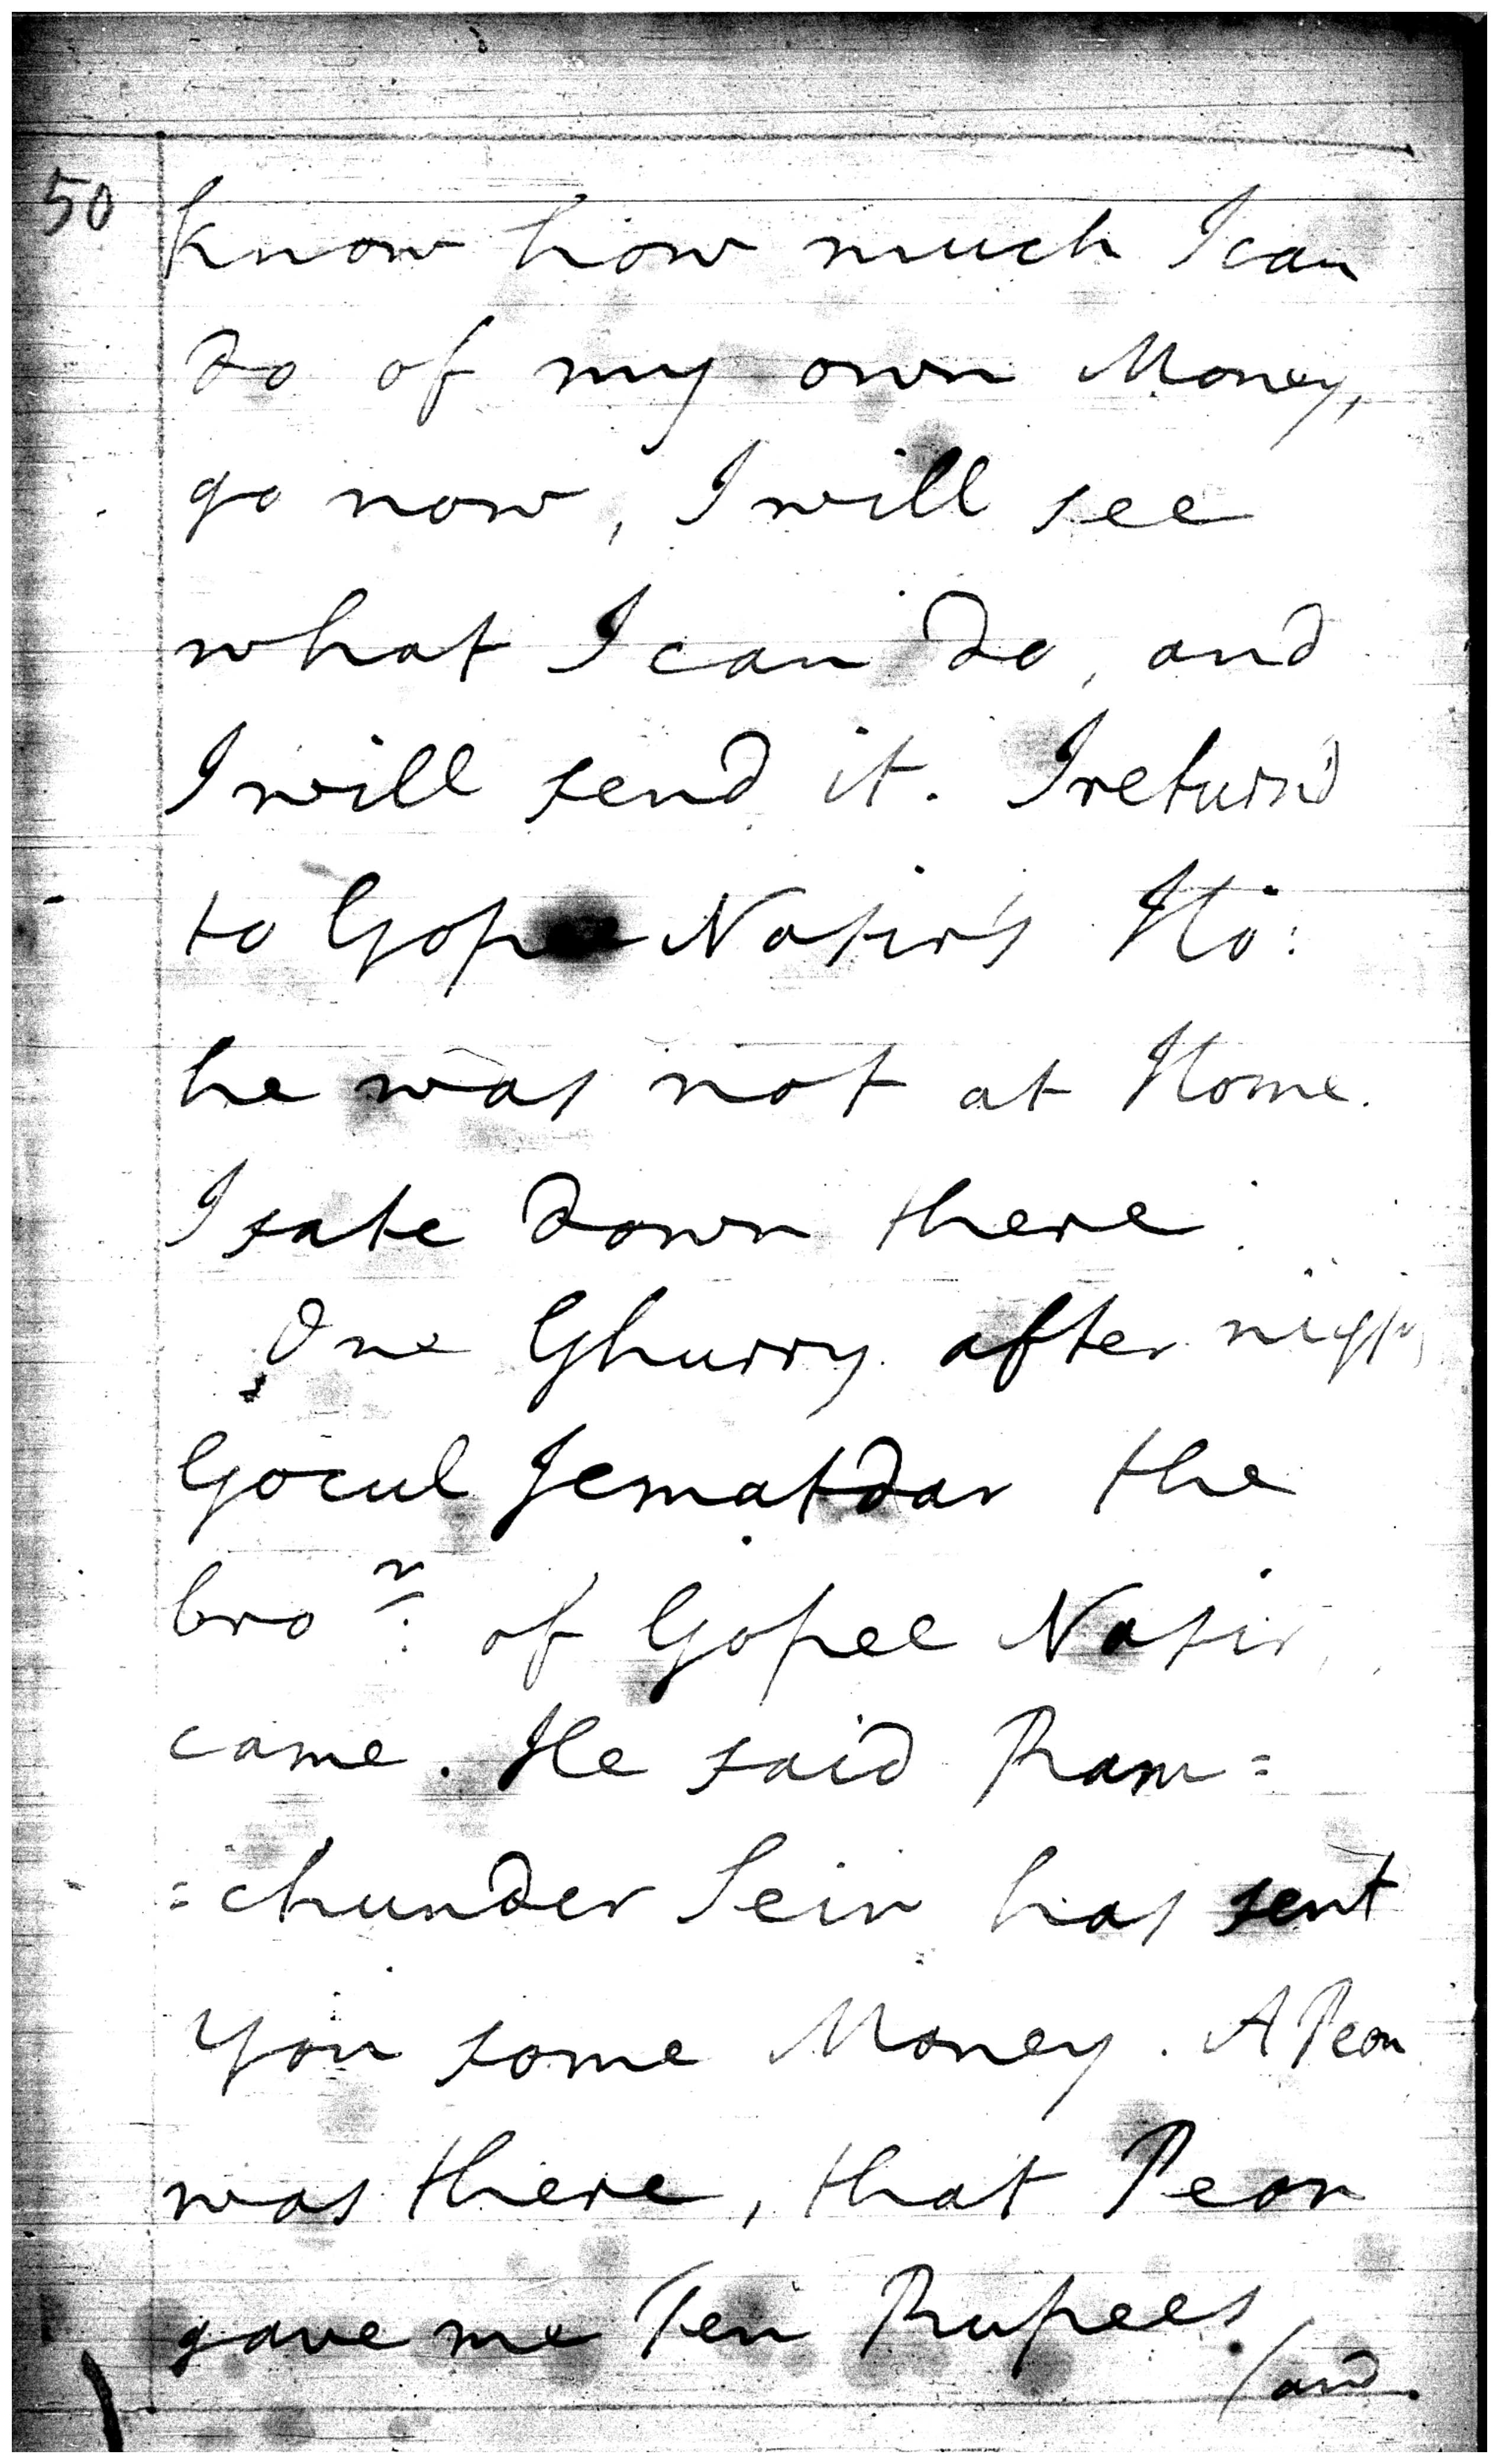 50
know how much I can
do of my own Money,
go now, I will see
what I can do, and
I will send it. I return'd
to Gopee Nasir's Ho:
he was not at Home.
I sate down there.
One Ghurry after night
Gocul Jematdar the
bro.r of Gopee Nasir,
came. He said Ram=
=chunder Sein has sent
you some Money. A Peon
was there, that Peon
gave me Ten Rupees.
(and